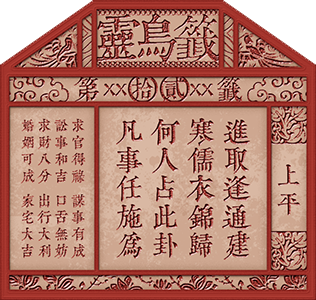 靈鳥籤
第××拾貳××籤
上平
進取逢通建
寒儒衣錦歸
何人占此卦
凡事任施為
求官得祿 謀事有成
訟事和吉 口舌無妨
求財八分 出行大利
婚姻可成 家宅大吉